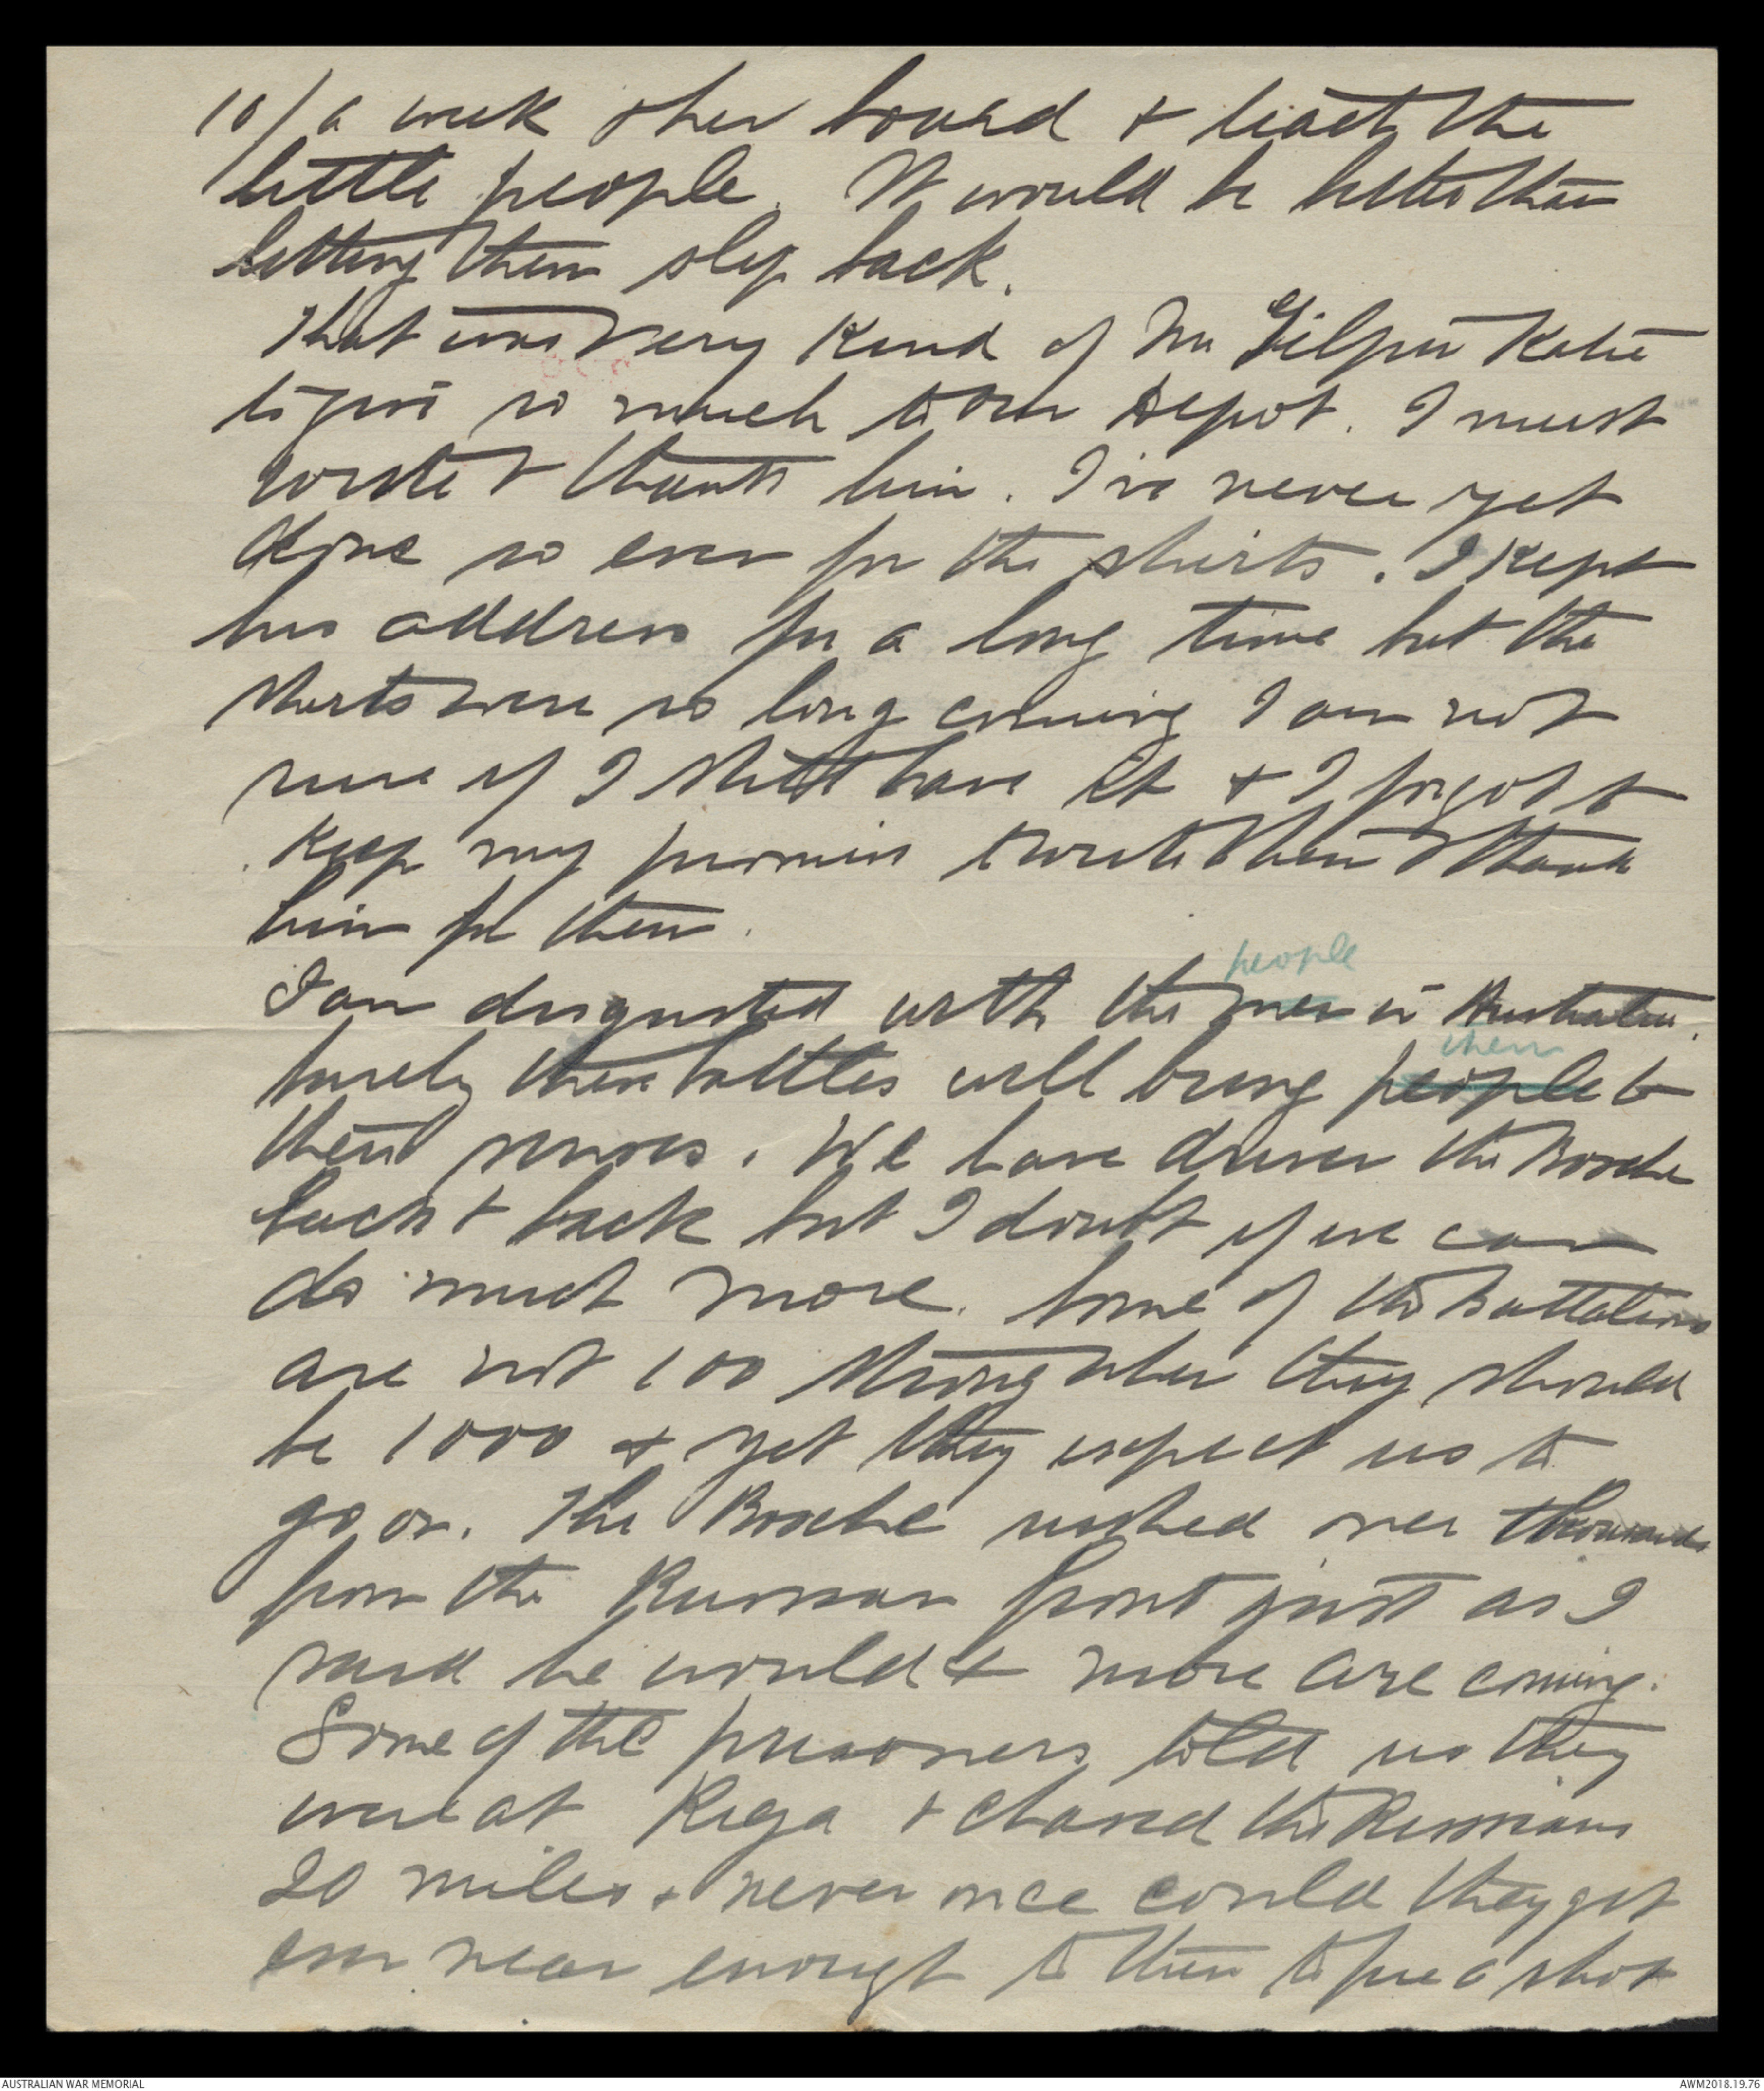 10/ a week & her board & teach the
little people. It would be better than
letting them slip back.
That was very kind of Mr Gilpin Katie
to give so much to our Depot. I must
write & thank him. I've never yet
done so even for the shirts. I kept
his address for a long time but the
shirts were so long coming I am not
sure if I still have it & I forgot to
keep my promise to write them & thank
him for them.
people
I am disgusted with the men in Australia.
them
Surely these battles will bring people to
their senses. We have driven the Bosche
back & back but I doubt if we can
do much more. Some of the Battalions
are not 100 strong when they should
be 1000 & yet they expect us to
go on. The Bosche rushed over thousands
from the Russian front just as I
said he would & more are coming.
Some of the prisoners told us they
were at Riga & chased the Russians
20 miles & never once could they get
even near enough to them to fire a shot
AUSTRALIAN WAR MEMORIAL
AWM2018.19.76